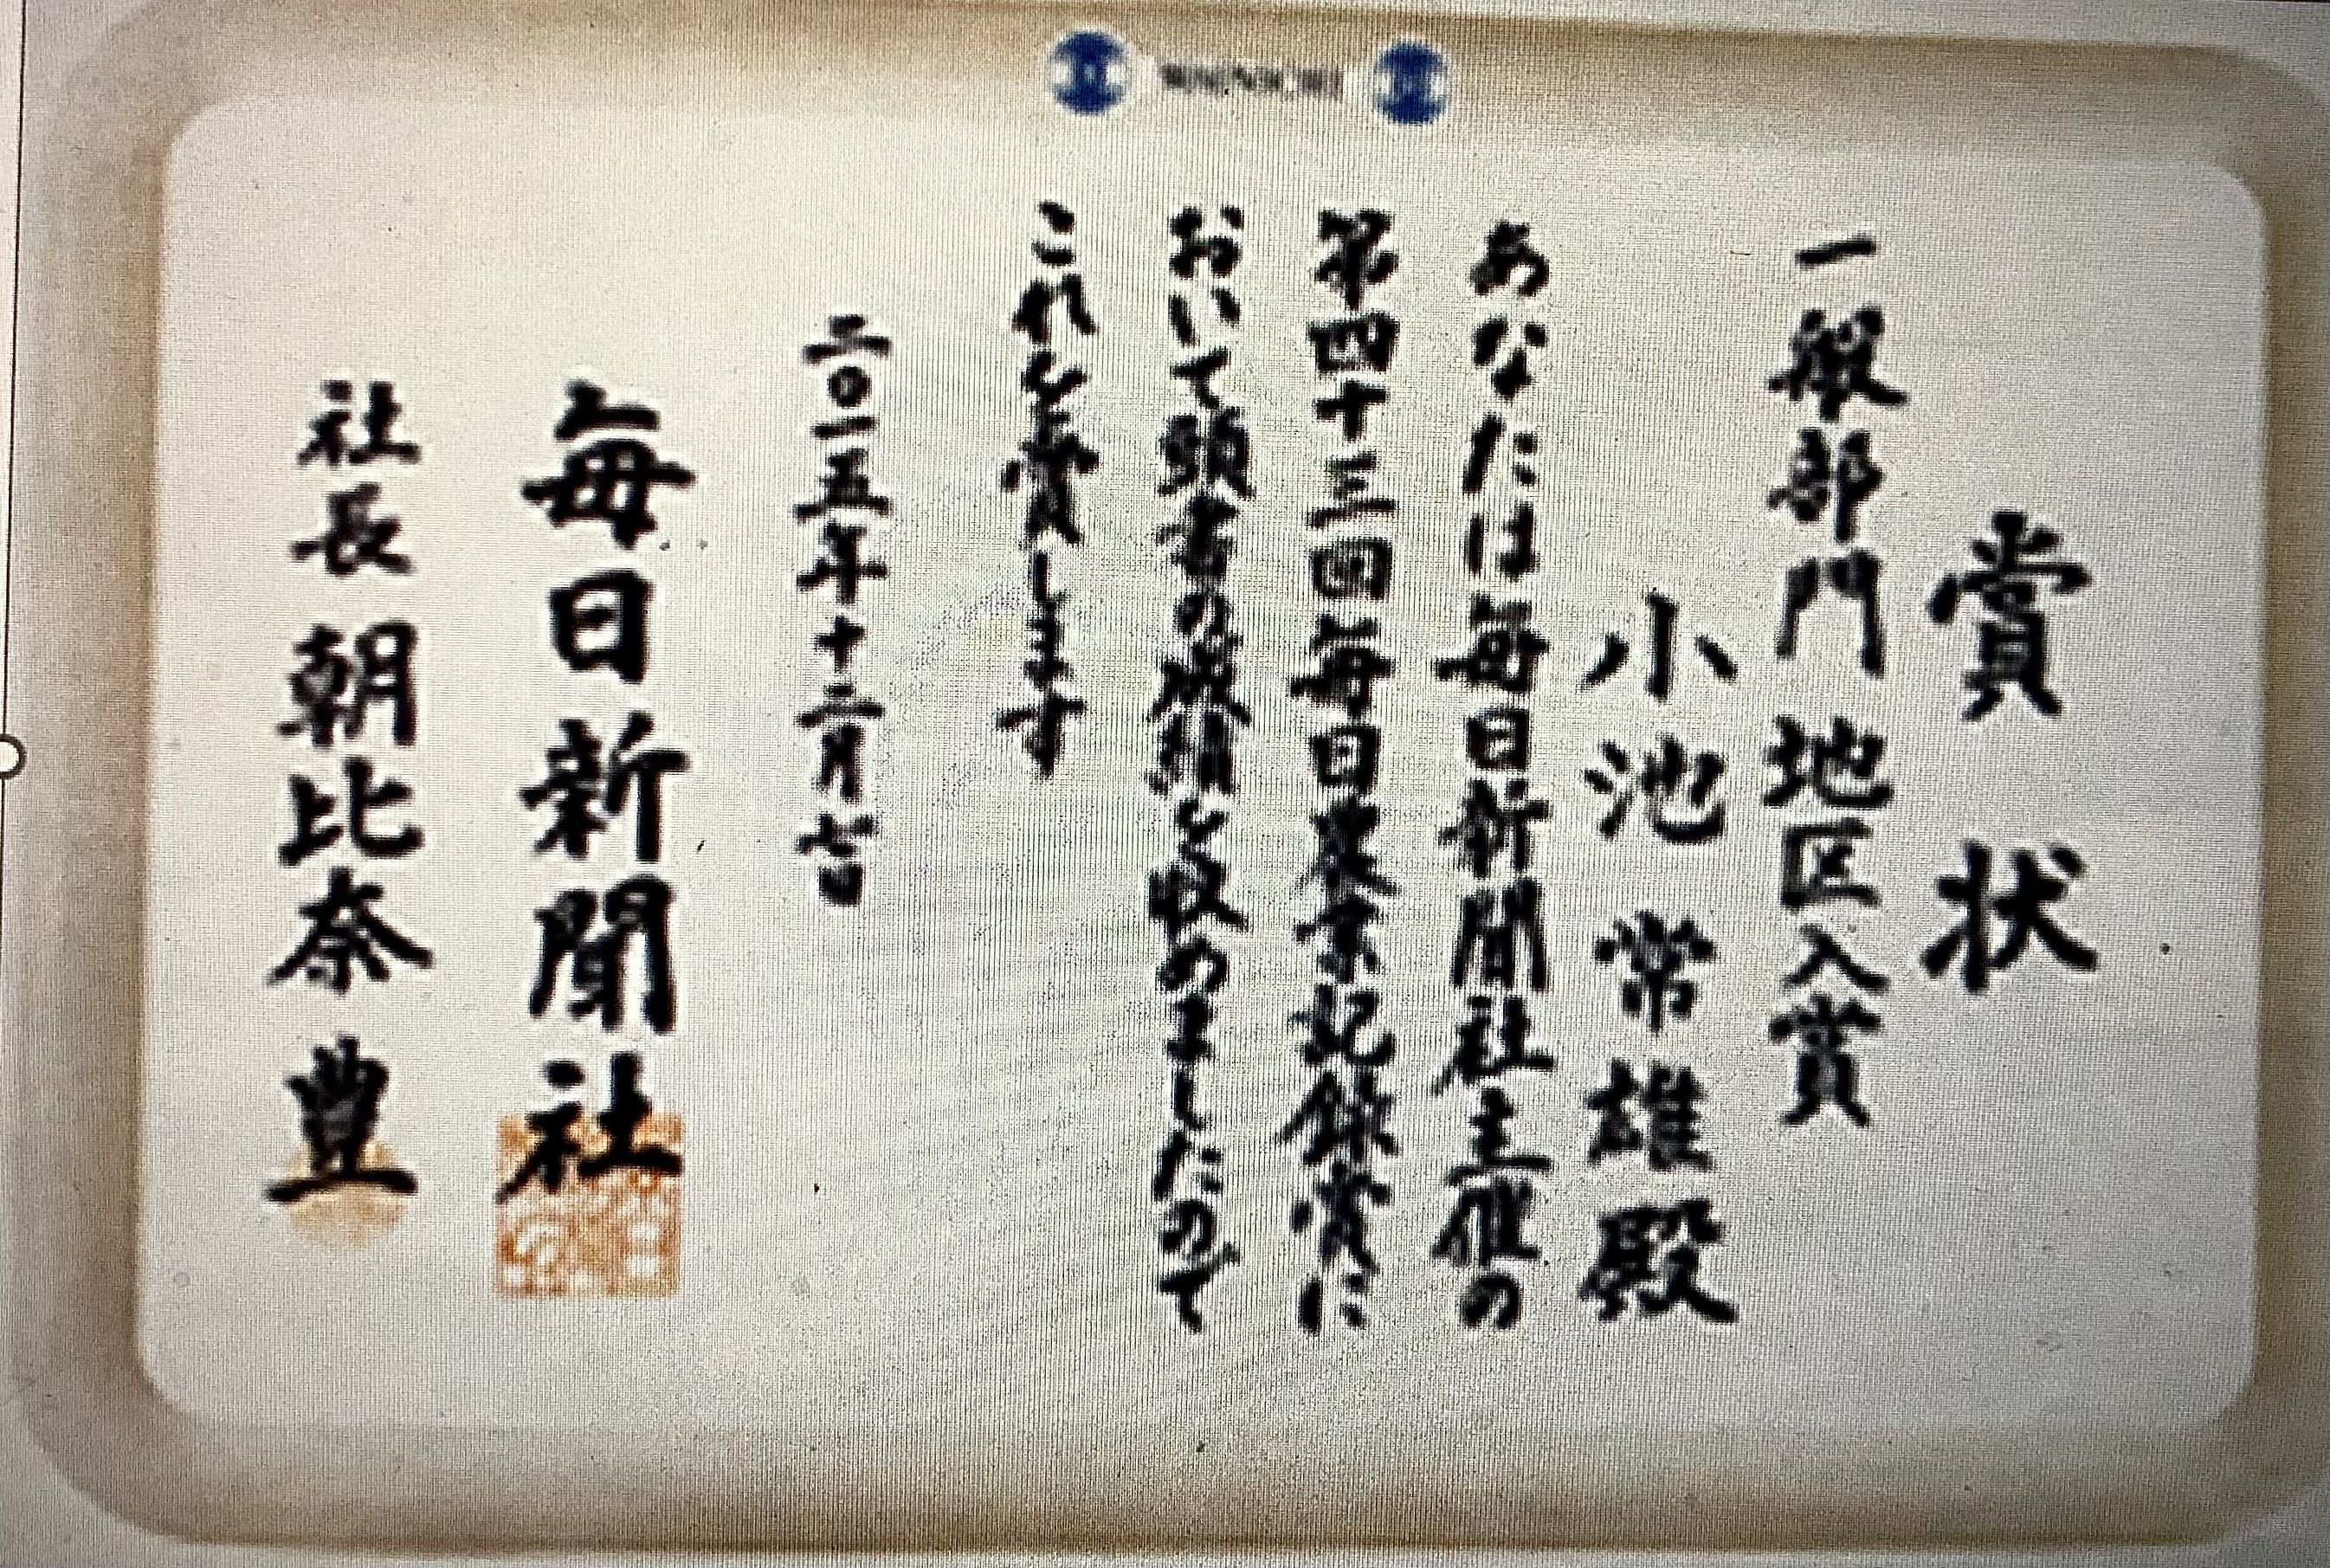 賞状
一般部門 地区入賞
小池 常雄 殿
あなたは毎日新聞社主催の
第四十三回毎日農業記録賞に
おいて頭書の成績を収めましたので
これを賞します
二〇一五年十二月七日
毎日新聞社
社長 朝比奈 豊